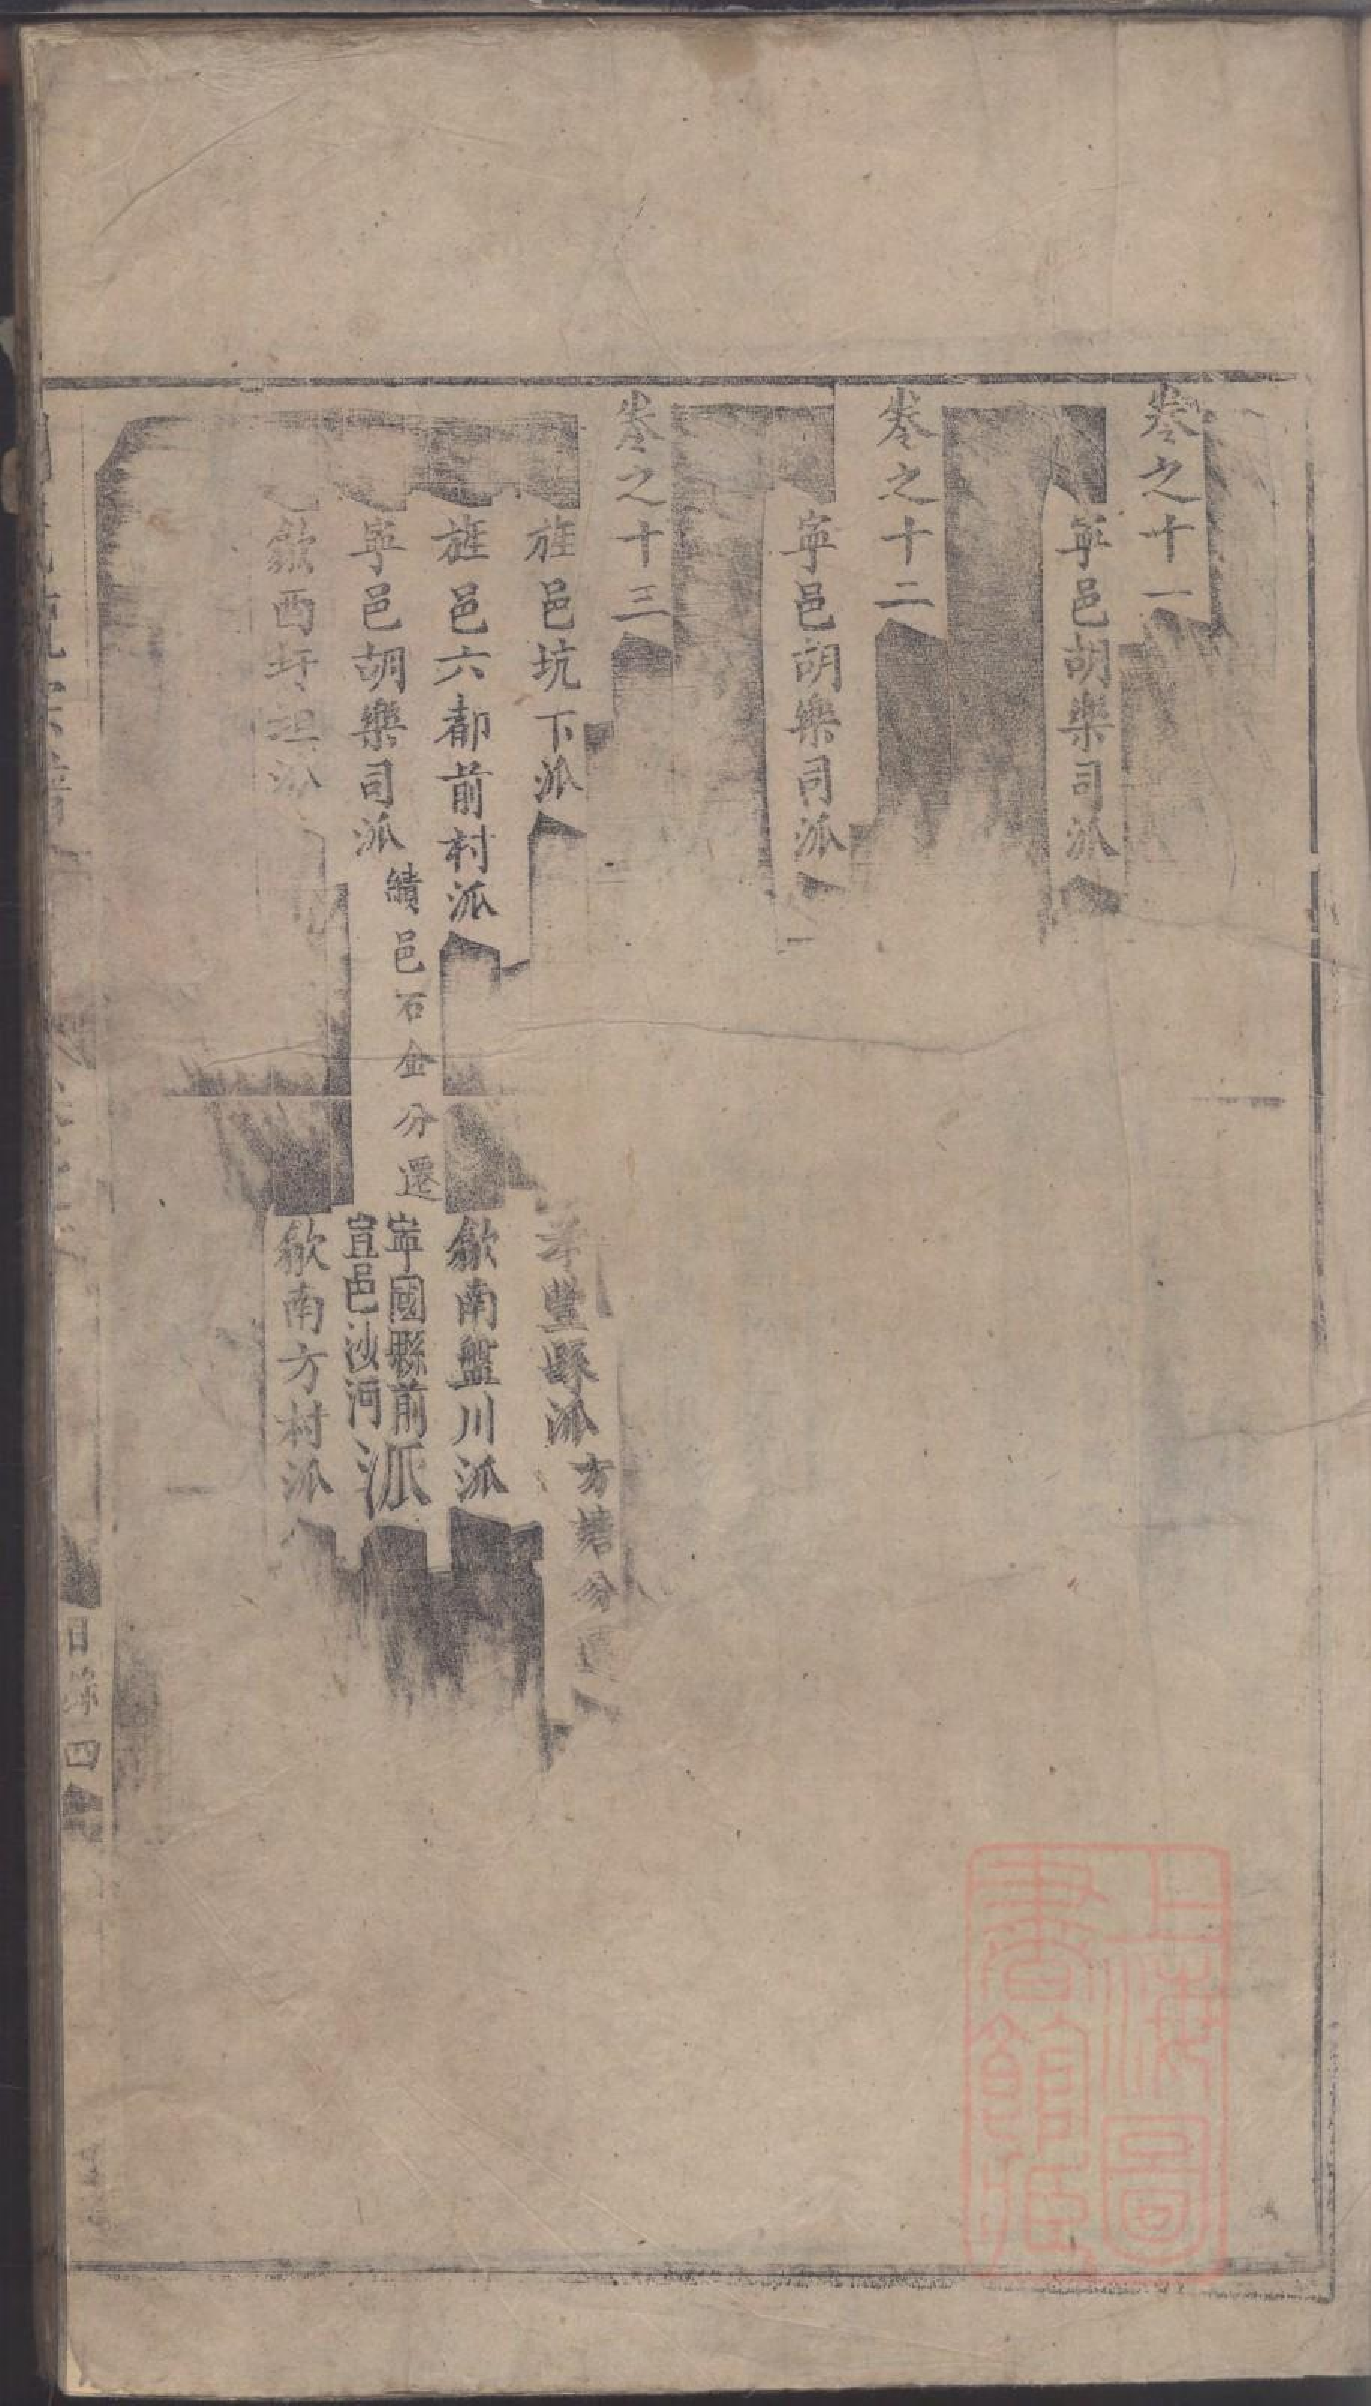 卷之十一
寧邑胡樂司派
卷之十二
寧邑胡樂司派
卷之十三
旌邑坑下派 孝豐縣派 方塘分遷
旌邑六都前村派 歙南盤川派
寧邑胡樂司派 績邑石金分遷 寧國縣前 宣邑沙河 派
歙西圩坦派 歙南方村派
目錄 四
上海圖書館藏